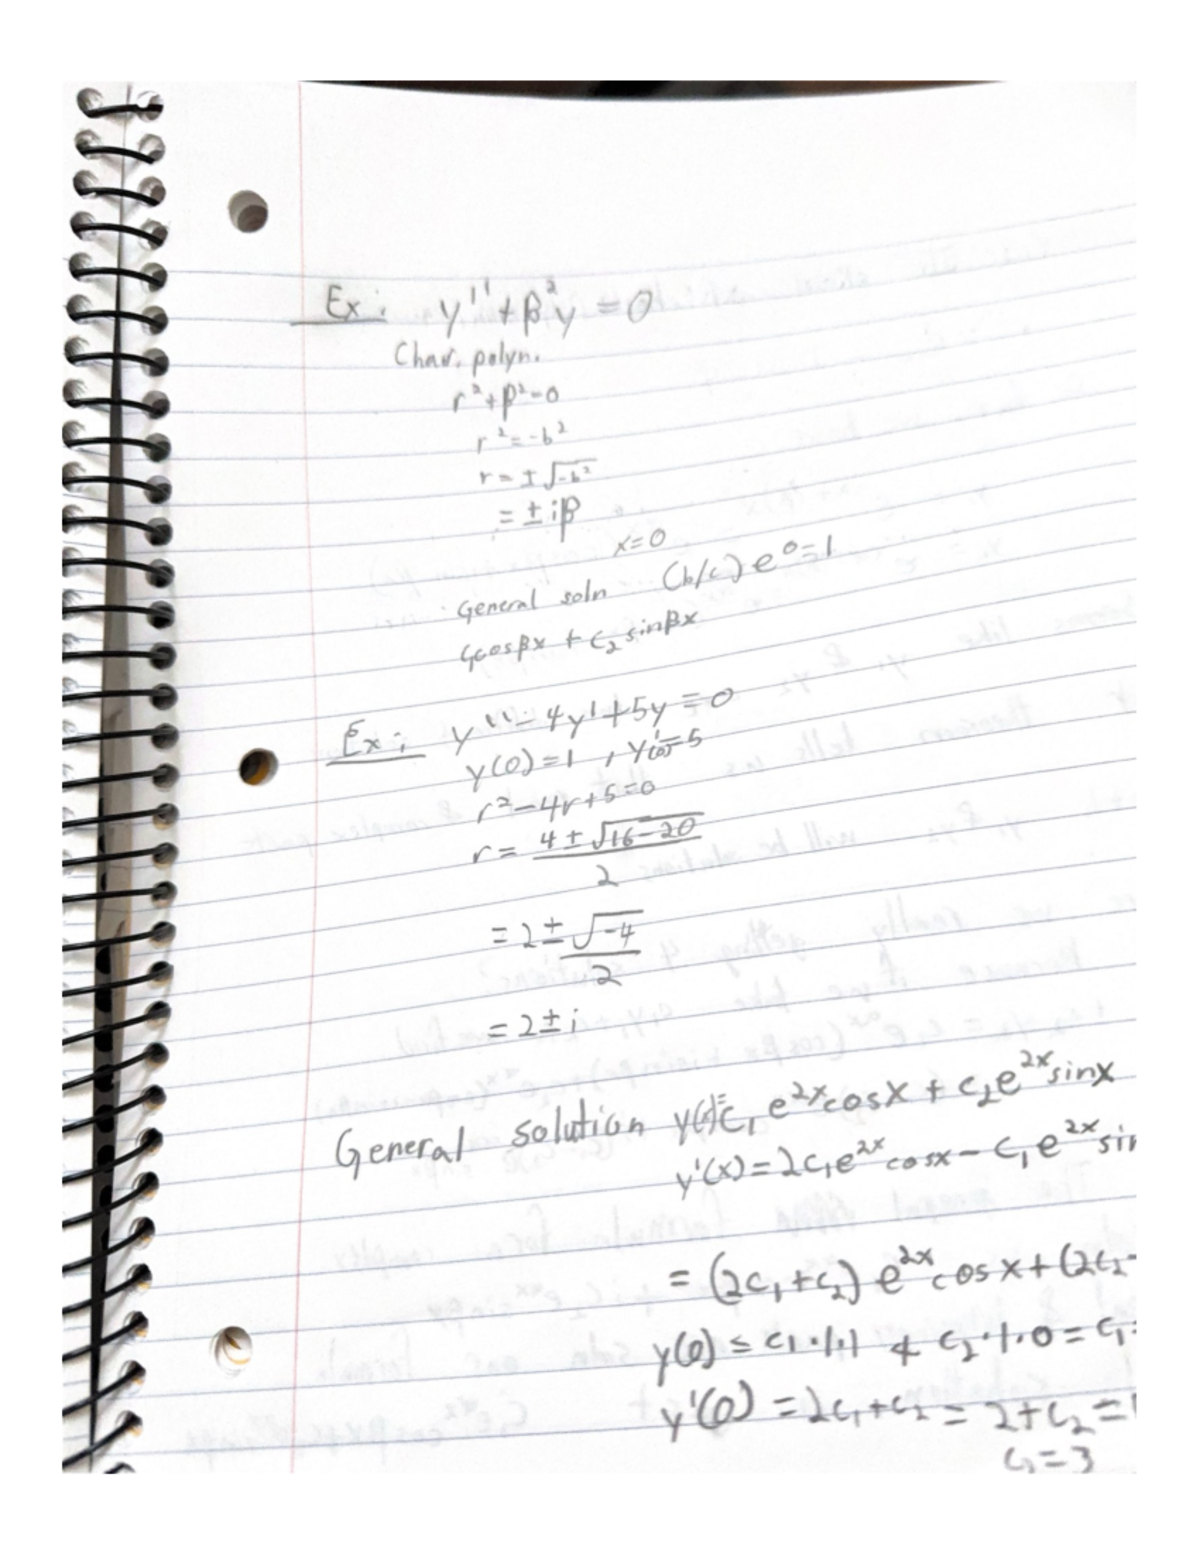 Ex: y'' + β²y = 0
Char. polyn.
r² + β² = 0
r² = -b²
r = ± √-b²
= ± iβ
x=0
General soln (b/c) e⁰=1
c₁cosβx + c₂ sinβx
Ex: y'' - 4y' + 5y = 0
y(0) = 1 , y'(0)=5
r² - 4r + 5 = 0
r = (4 ± √16-20)/2
= 2 ± √-4/2
= 2 ± i
General solution y(x)= c₁ e²ˣcosx + c₂e²ˣsinx
y'(x) = 2c₁e²ˣcosx - c₁e²ˣsin
= (2c₁+c₂) e²ˣcosx + (2c₂-
y(0) = c₁·1·1 + c₂·1·0 = c₁=
y'(0) = 2c₁+c₂ = 2+c₂ =
c₂=3